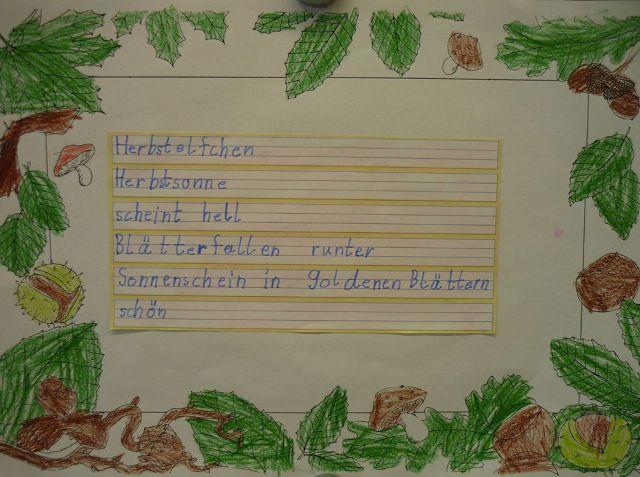 Herbstelfchen
Herbstsonne
scheint hell
Blätter fallen runter
Sonnenschein in goldenen Blättern
schön